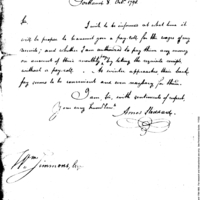 Portland 8 Octr. 1796
Sir.
I wish to be informed at what time it
will be proper to transmit you a pay-roll for the wages of my
recruits; and whether I am authorized to pay them any money
on account of their monthly pay by taking the requisite receipts
without a pay-roll. As winter approaches their bounty
pay ceases to be convenient and even necessary for them.
I am, Sir, with sentiments of respect,
Your very humble
Amos Stoddard
Wm. Simmons, Esq.